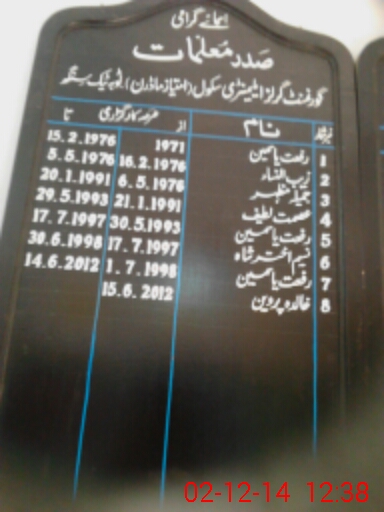 اسمائے گرامی
صدر معلمات
گورنمنٹ گرلز ایلیمنٹری سکول (امتیاز ماڈرن) ٹوبہ ٹیک سنگھ
نمبرشمار نام عرصہ کارگزاری از تا
1 رفعت یاسمین 1971 15.2.1976
2 زیب النساء 16.2.1976 5.5.1976
3 جمیلہ مظہر 6.5.1976 20.1.1991
4 عصمت لطیف 21.1.1991 29.5.1993
5 رفعت یاسمین 30.5.1993 17.7.1997
6 نسیم اختر شاہ 17.7.1997 30.6.1998
7 رفعت یاسمین 1.7.1998 14.6.2012
8 خالدہ پروین 15.6.2012
02-12-14 12:38